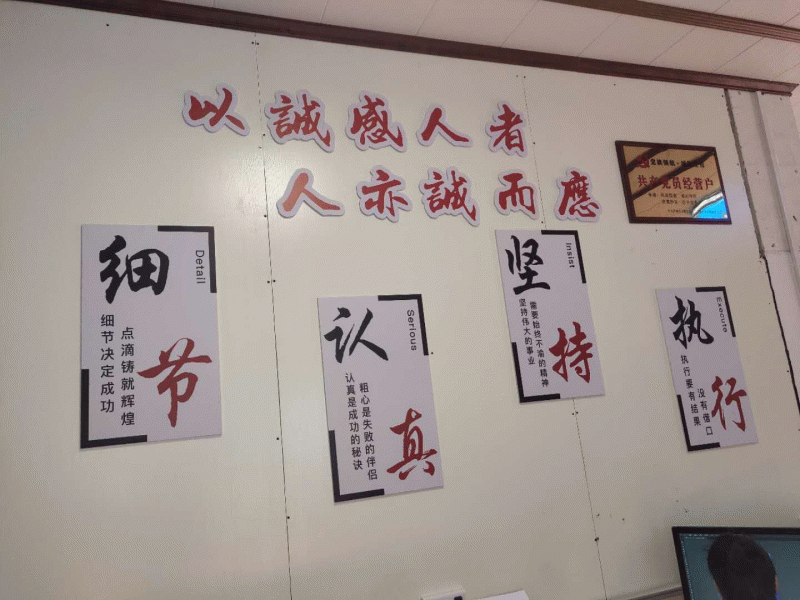 以誠感人者
人亦誠而應
共产党员经营户
细节
Detail
点滴铸就辉煌
细节决定成功
认真
Serious
粗心是失败的伴侣
认真是成功的秘诀
坚持
Insist
需要始终不渝的精神
坚持伟大的事业
执行
Execute
没有借口
执行要有结果